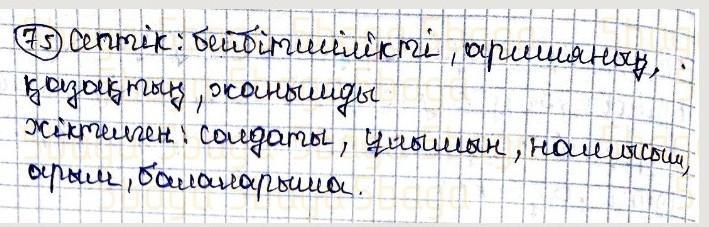 75) Септік: бейбітшілікті, аршияның,
қазақтың, жанымды
Жіктелген: солдаты, ұлымын, намысым,
арым, балаларыма.